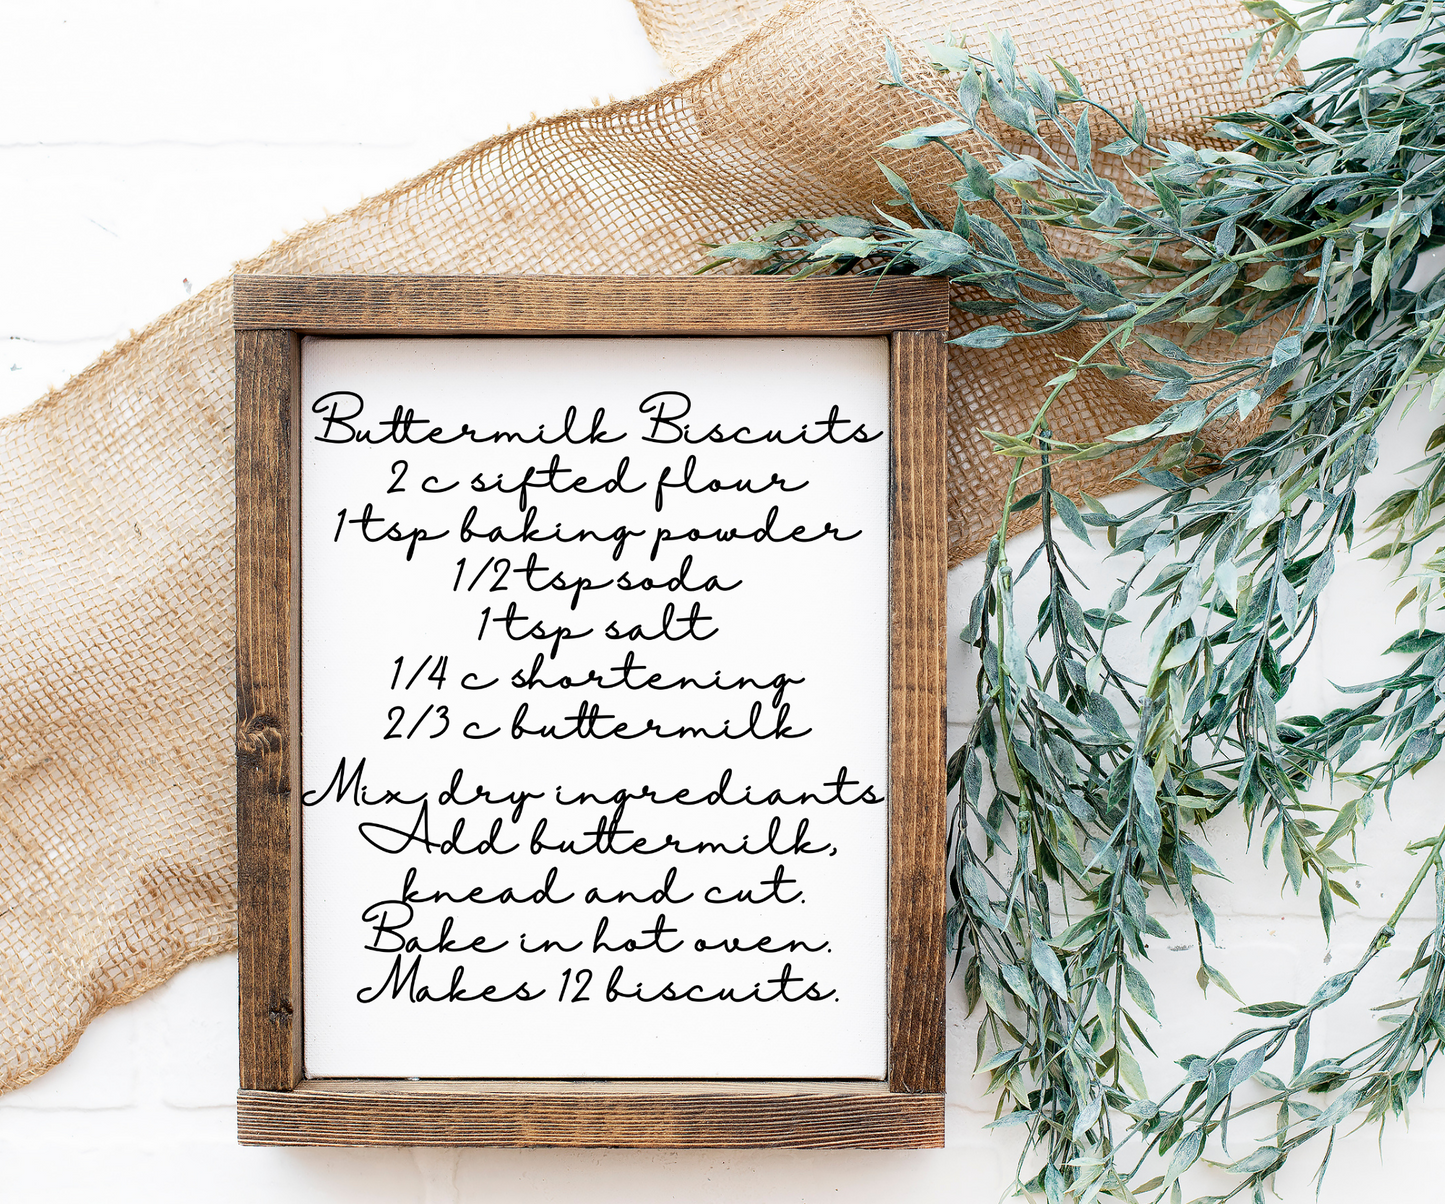 Buttermilk Biscuits
2 c sifted flour
1 tsp baking powder
1/2 tsp soda
1 tsp salt
1/4 c shortening
2/3 c buttermilk
Mix dry ingrediants
Add buttermilk,
knead and cut.
Bake in hot oven.
Makes 12 biscuits.